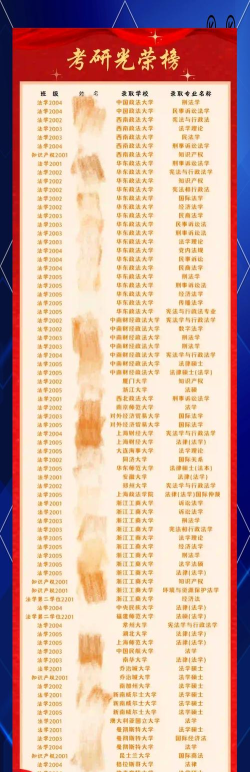 考研光荣榜
班 级 姓 名 录取学校 录取专业名称
法学2004 中国政法大学 刑法学
法学2004 西南政法大学 民事诉讼法
法学2002 西南政法大学 宪法与行政法
法学2003 西南政法大学 法学理论
法学2003 西南政法大学 民法学
法学2004 西南政法大学 刑事诉讼法
知识产权2001 西南政法大学 知识产权
法学2001 华东政法大学 刑事诉讼法
法学2002 华东政法大学 宪法与行政法
法学2002 华东政法大学 知识产权
法学2002 华东政法大学
法学2002 华东政法大学 国际法学
法学2002 华东政法大学 经济法学
法学2003 华东政法大学 民商法学
法学2003 华东政法大学 民事诉讼法
法学2003 华东政法大学 法学理论
法学2004 华东政法大学 党内法规
法学2004 华东政法大学 民事诉讼
法学2004 华东政法大学
法学2005 华东政法大学 刑法学
法学2005 华东政法大学 刑事诉讼法
法学2005 华东政法大学 经济法学
法学2005 华东政法大学
法学2005 华东政法大学 宪法与行政法专业
法学2002 中南财经政法大学 宪法与行政法学
法学2002 中南财经政法大学 数字法学
法学2003 中南财经政法大学 刑法学
法学2003 中南财经政法大学 刑法学
法学2005 中南财经政法大学 法律硕士
法学2005 中南财经政法大学 法律硕士(法学)
法学2002 厦门大学 知识产权
法学2005 浙江大学
法学2001 西北政法大学 刑事诉讼法
法学2002 南京师范大学 法学
法学2003 对外经济贸易大学 国际法学
法学2005 对外经济贸易大学 国际法学
法学2004 广东财经大学 宪法学与行政法学
法学2005 上海财经大学 法律(法学)
法学2005 大连海事大学 法学理论
法学2002 同济大学 国际关系
法学2004 华东师范大学
法学2005 安徽大学 法律(法学)
法学2002 郑州大学 宪法学与行政法
法学2002 上海政法学院
法学2001 浙江工商大学 诉讼法学
法学2001 浙江工商大学 诉讼法学
法学2003 浙江工商大学 刑法学
法学2003 浙江工商大学
法学2005 浙江工商大学 法学理论
法学2005 浙江工商大学 经济法学
法学2005 浙江工商大学 刑法学
法学2005 浙江工商大学
法学2005 浙江工商大学 法律(法学)
知识产权2001 浙江工商大学 知识产权
知识产权2001 浙江工商大学 环境与资源保护法学
法学第二学位2201 浙江工商大学 经济法
法学2004 中央民族大学 法律(法学)
法学第二学位2201 福建师范大学 法律(法学)
法学2004 常州大学 宪法学与行政法学
法学2005 湖北大学 法律(法学)
法学2005 上海师范大学 法律(法学)
法学2003 中国民航大学 法学
法学2003 南华大学 法律(法学)
知识产权2001 香港城市大学 法学硕士
知识产权2001 香港城市大学 法学硕士
法学2002 南加州大学 法学硕士
法学2001 新南威尔士大学 法学硕士
法学2005 新南威尔士大学 法学硕士
法学2005 新南威尔士大学 法学硕士
法学2004 澳大利亚国立大学 法学
法学2001 曼彻斯特大学 商法
法学2003 曼彻斯特大学 国际经济法
知识产权2001 昆士兰大学 国际法
法学2004 伦敦玛丽 法律